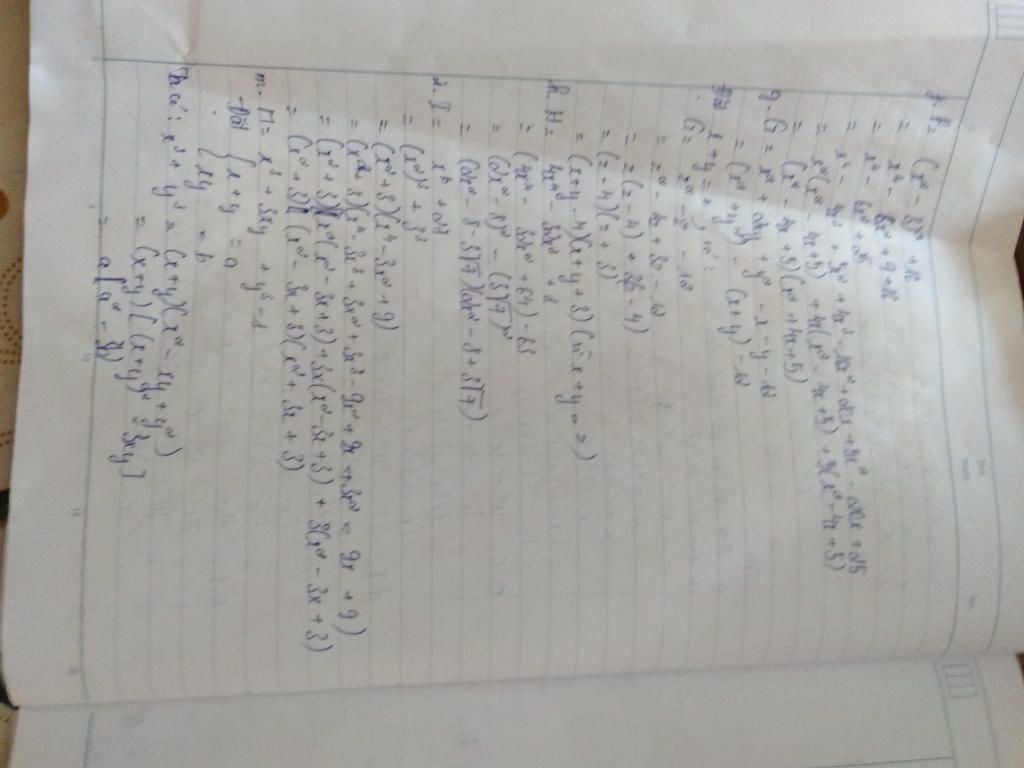 f. F = (x² - 3)² + 16
= x⁴ - 6x² + 9 + 16
= x⁴ - 6x² + 25
= x⁴ - 4x³ + 5x² + 4x³ - 16x² + 20x + 5x² - 20x + 25
= x²(x² - 4x + 5) + 4x(x² - 4x + 5) + 5(x² - 4x + 5)
= (x² - 4x + 5)(x² + 4x + 5)
g. G = x² + 2xy + y² - x - y - 12
= (x + y)² - (x + y) - 12
Đặt x + y = z, có:
G = z² - z - 12
= z² - 4z + 3z - 12
= z(z - 4) + 3(z - 4)
= (z - 4)(z + 3)
= (x + y - 4)(x + y + 3) (vì x + y = z)
h. H = 4x⁴ - 32x² + 1
= (4x⁴ - 32x² + 64) - 63
= (2x² - 8)² - (3√7)²
= (2x² - 8 - 3√7)(2x² - 8 + 3√7)
I = x⁶ + 27
= (x²)³ + 3³
= (x² + 3)(x⁴ - 3x² + 9)
= (x² + 3)(x⁴ - 3x³ + 3x² + 3x³ - 9x² + 9x + 3x² - 9x + 9)
= (x² + 3)[x²(x² - 3x + 3) + 3x(x² - 3x + 3) + 3(x² - 3x + 3)
= (x² + 3)(x² - 3x + 3)(x² + 3x + 3)
m. M = x³ + 3xy + y³ - 1
Đặt { x + y = a
{ xy = b
Th có: x³ + y³ = (x + y)(x² - xy + y²)
= (x + y)[(x + y)² - 3xy]
= a(a² - 3b)